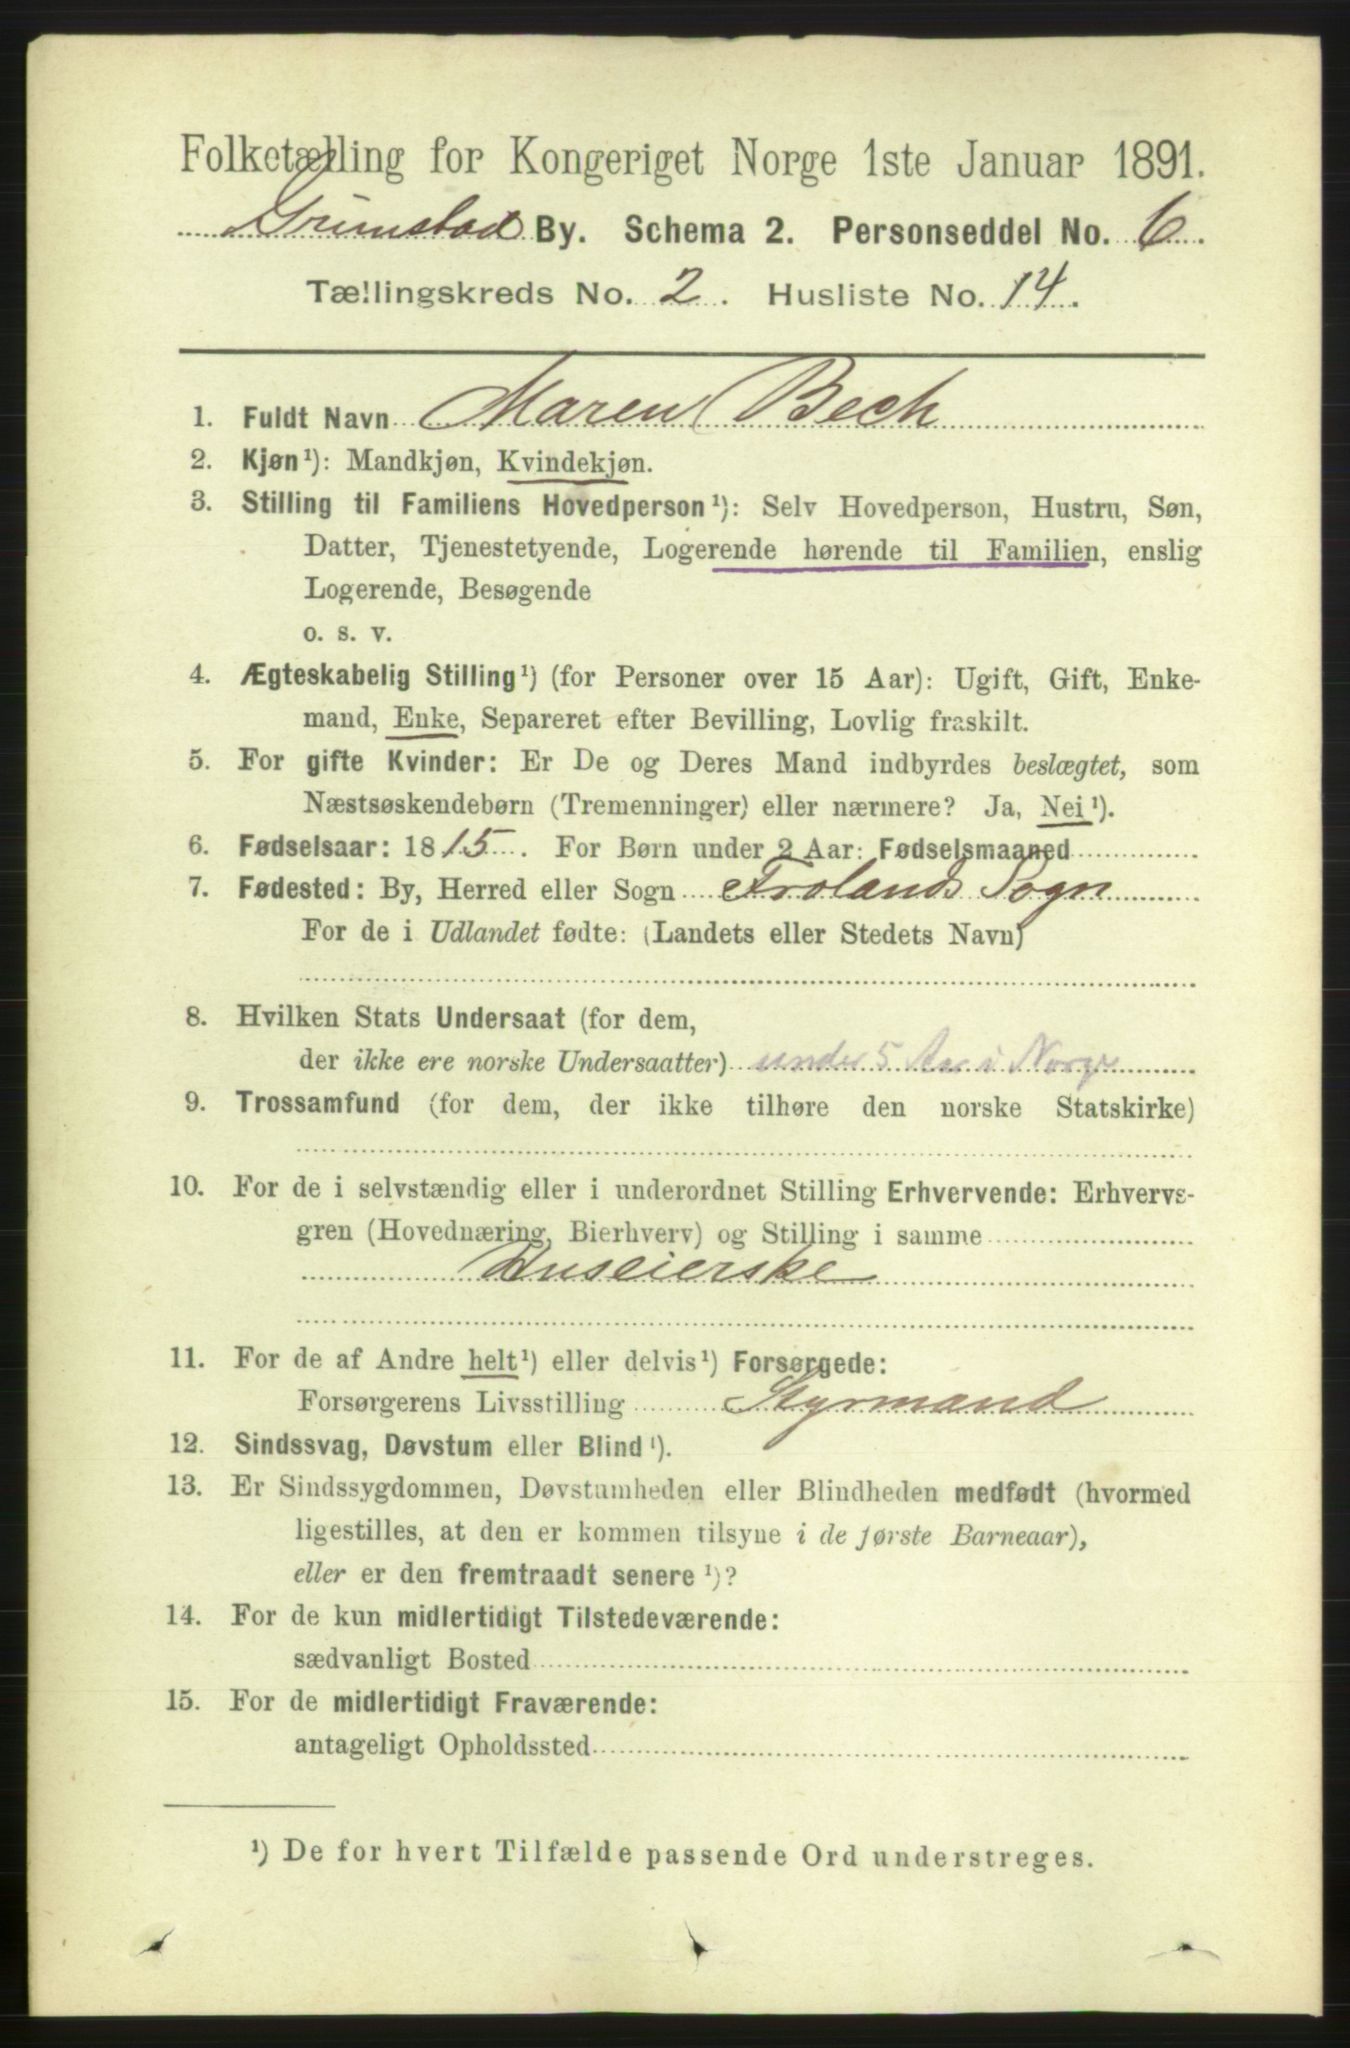 Folketælling for Kongeriget Norge 1ste Januar 1891.
Grimstad By. Schema 2. Personseddel No. 6.
Tællingskreds No. 2. Husliste No. 14.
1. Fuldt Navn Maren Bech
2. Kjøn¹): Mandkjøn, Kvindekjøn.
3. Stilling til Familiens Hovedperson¹): Selv Hovedperson, Hustru, Søn,
Datter, Tjenestetyende, Logerende hørende til Familien, enslig
Logerende, Besøgende
o. s. v.
4. Ægteskabelig Stilling¹) (for Personer over 15 Aar): Ugift, Gift, Enke-
mand, Enke, Separeret efter Bevilling, Lovlig fraskilt.
5. For gifte Kvinder: Er De og Deres Mand indbyrdes beslægtet, som
Næstsøskendebørn (Tremenninger) eller nærmere? Ja, Nei¹).
6. Fødselsaar: 1815. For Børn under 2 Aar: Fødselsmaaned
7. Fødested: By, Herred eller Sogn Frolands Sogn
For de i Udlandet fødte: (Landets eller Stedets Navn)
8. Hvilken Stats Undersaat (for dem,
der ikke ere norske Undersaatter) under 5 Aar i Norge
9. Trossamfund (for dem, der ikke tilhøre den norske Statskirke)
10. For de i selvstændig eller i underordnet Stilling Erhvervende: Erhvervs-
gren (Hovednæring, Bierhverv) og Stilling i samme
Huseierske
11. For de af Andre helt¹) eller delvis¹) Forsørgede:
Forsørgerens Livsstilling Styrmand
12. Sindssvag, Døvstum eller Blind¹).
13. Er Sindssygdommen, Døvstumheden eller Blindheden medfødt (hvormed
ligestilles, at den er kommen tilsyne i de første Barneaar),
eller er den fremtraadt senere¹)?
14. For de kun midlertidigt Tilstedeværende:
sædvanligt Bosted
15. For de midlertidigt Fraværende:
antageligt Opholdssted
¹) De for hvert Tilfælde passende Ord understreges.